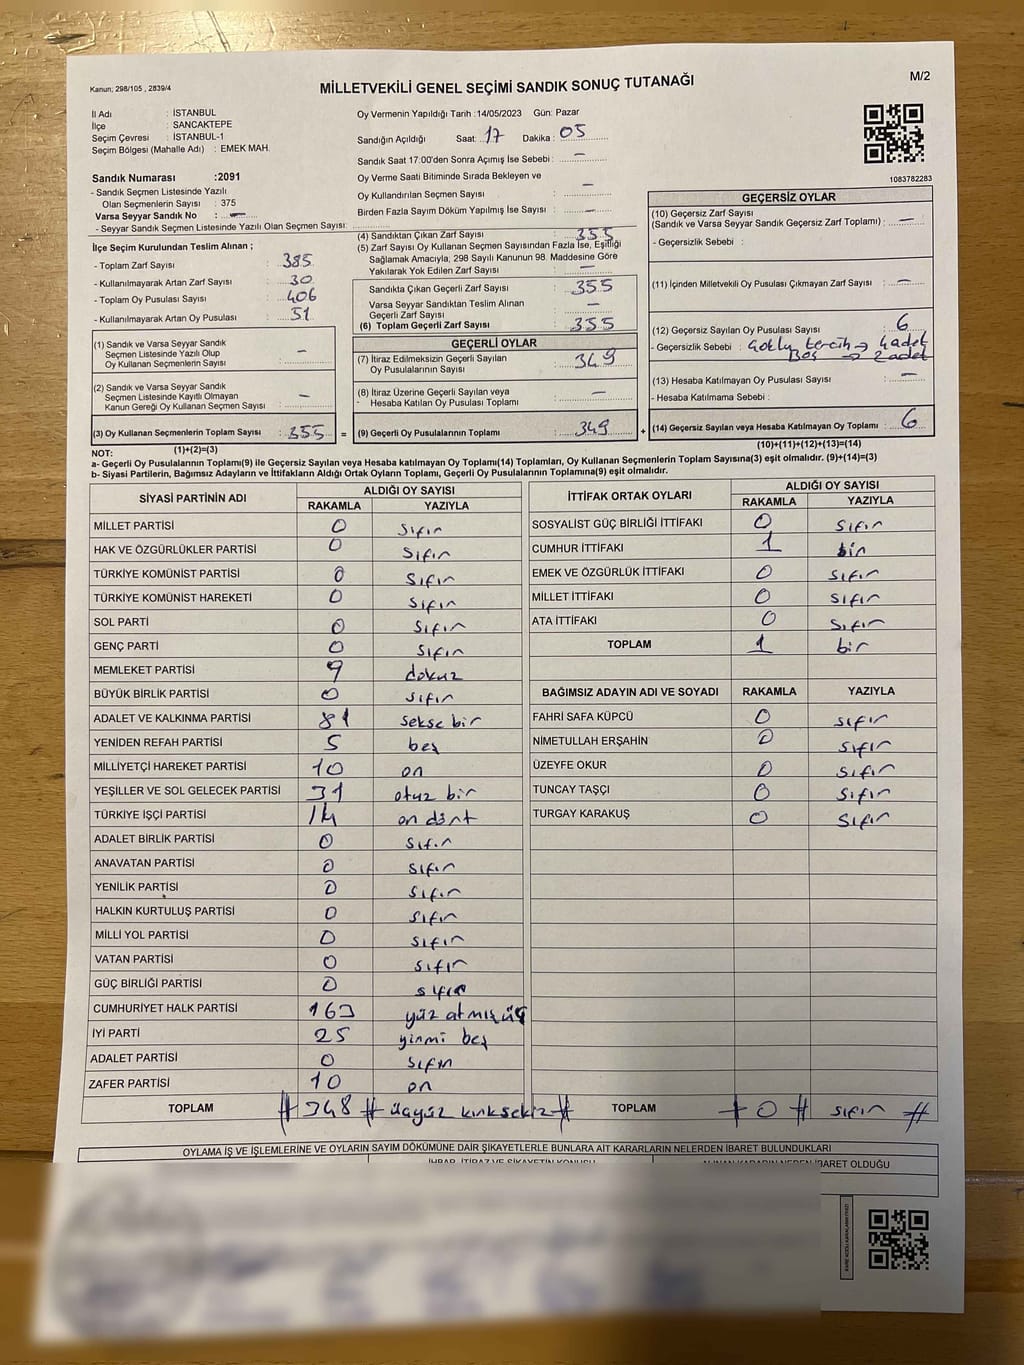 Kanun; 298/105 , 2839/4
MİLLETVEKİLİ GENEL SEÇİMİ SANDIK SONUÇ TUTANAĞI
M/2
İl Adı : İSTANBUL
İlçe : SANCAKTEPE
Seçim Çevresi : İSTANBUL-1
Seçim Bölgesi (Mahalle Adı) : EMEK MAH.
Sandık Numarası :2091
- Sandık Seçmen Listesinde Yazılı
Olan Seçmenlerin Sayısı : 375
Varsa Seyyar Sandık No : —
- Seyyar Sandık Seçmen Listesinde Yazılı Olan Seçmen Sayısı:
İlçe Seçim Kurulundan Teslim Alınan ;
- Toplam Zarf Sayısı : 385
- Kullanılmayarak Artan Zarf Sayısı : 30
- Toplam Oy Pusulası Sayısı : 406
- Kullanılmayarak Artan Oy Pusulası : 51
(1) Sandık ve Varsa Seyyar Sandık
Seçmen Listesinde Yazılı Olup
Oy Kullanan Seçmenlerin Sayısı : —
(2) Sandık ve Varsa Seyyar Sandık
Seçmen Listesinde Kayıtlı Olmayan
Kanun Gereği Oy Kullanan Seçmen Sayısı : —
(3) Oy Kullanan Seçmenlerin Toplam Sayısı : 355 =
Oy Vermenin Yapıldığı Tarih :14/05/2023 Gün: Pazar
Sandığın Açıldığı Saat: 17 Dakika : 05
Sandık Saat 17:00'den Sonra Açımış İse Sebebi : —
Oy Verme Saati Bitiminde Sırada Bekleyen ve
Oy Kullandırılan Seçmen Sayısı : —
Birden Fazla Sayım Döküm Yapılmış İse Sayısı : —
(4) Sandıktan Çıkan Zarf Sayısı : 355
(5) Zarf Sayısı Oy Kullanan Seçmen Sayısından Fazla İse, Eşitliği
Sağlamak Amacıyla, 298 Sayılı Kanunun 98. Maddesine Göre
Yakılarak Yok Edilen Zarf Sayısı : —
Sandıkta Çıkan Geçerli Zarf Sayısı : 355
Varsa Seyyar Sandıktan Teslim Alınan
Geçerli Zarf Sayısı : —
(6) Toplam Geçerli Zarf Sayısı : 355
GEÇERLİ OYLAR
(7) İtiraz Edilmeksizin Geçerli Sayılan
Oy Pusulalarının Sayısı : 349
(8) İtiraz Üzerine Geçerli Sayılan veya
Hesaba Katılan Oy Pusulası Toplamı : —
(9) Geçerli Oy Pusulalarının Toplamı : 349 +
1083782283
GEÇERSİZ OYLAR
(10) Geçersiz Zarf Sayısı
(Sandık ve Varsa Seyyar Sandık Geçersiz Zarf Toplamı) : —
- Geçersizlik Sebebi :
(11) İçinden Milletvekili Oy Pusulası Çıkmayan Zarf Sayısı : —
(12) Geçersiz Sayılan Oy Pusulası Sayısı : 6
- Geçersizlik Sebebi : Çoklu tercih → 4 adet
Boş → 2 adet
(13) Hesaba Katılmayan Oy Pusulası Sayısı : —
- Hesaba Katılmama Sebebi :
(14) Geçersiz Sayılan veya Hesaba Katılmayan Oy Toplamı : 6
NOT: (1)+(2)=(3) (10)+(11)+(12)+(13)=(14)
a- Geçerli Oy Pusulalarının Toplamı(9) ile Geçersiz Sayılan veya Hesaba katılmayan Oy Toplamı(14) Toplamları, Oy Kullanan Seçmenlerin Toplam Sayısına(3) eşit olmalıdır. (9)+(14)=(3)
b- Siyasi Partilerin, Bağımsız Adayların ve İttifakların Aldığı Ortak Oyların Toplamı, Geçerli Oy Pusulalarının Toplamına(9) eşit olmalıdır.
SİYASİ PARTİNİN ADI ALDIĞI OY SAYISI
RAKAMLA YAZIYLA
MİLLET PARTİSİ 0 sıfır
HAK VE ÖZGÜRLÜKLER PARTİSİ 0 sıfır
TÜRKİYE KOMÜNİST PARTİSİ 0 sıfır
TÜRKİYE KOMÜNİST HAREKETİ 0 sıfır
SOL PARTİ 0 sıfır
GENÇ PARTİ 0 sıfır
MEMLEKET PARTİSİ 9 dokuz
BÜYÜK BİRLİK PARTİSİ 0 sıfır
ADALET VE KALKINMA PARTİSİ 81 sekse bir
YENİDEN REFAH PARTİSİ 5 beş
MİLLİYETÇİ HAREKET PARTİSİ 10 on
YEŞİLLER VE SOL GELECEK PARTİSİ 31 otuz bir
TÜRKİYE İŞÇİ PARTİSİ 14 on dört
ADALET BİRLİK PARTİSİ 0 sıfır
ANAVATAN PARTİSİ 0 sıfır
YENİLİK PARTİSİ 0 sıfır
HALKIN KURTULUŞ PARTİSİ 0 sıfır
MİLLİ YOL PARTİSİ 0 sıfır
VATAN PARTİSİ 0 sıfır
GÜÇ BİRLİĞİ PARTİSİ 0 sıfır
CUMHURİYET HALK PARTİSİ 163 yüz atmış üç
İYİ PARTİ 25 yirmi beş
ADALET PARTİSİ 0 sıfır
ZAFER PARTİSİ 10 on
TOPLAM # 348 # üçyüz kırksekiz #
İTTİFAK ORTAK OYLARI ALDIĞI OY SAYISI
RAKAMLA YAZIYLA
SOSYALİST GÜÇ BİRLİĞİ İTTİFAKI 0 sıfır
CUMHUR İTTİFAKI 1 bir
EMEK VE ÖZGÜRLÜK İTTİFAKI 0 sıfır
MİLLET İTTİFAKI 0 sıfır
ATA İTTİFAKI 0 sıfır
TOPLAM 1 bir
BAĞIMSIZ ADAYIN ADI VE SOYADI RAKAMLA YAZIYLA
FAHRİ SAFA KÜPCÜ 0 sıfır
NİMETULLAH ERŞAHİN 0 sıfır
ÜZEYFE OKUR 0 sıfır
TUNCAY TAŞÇI 0 sıfır
TURGAY KARAKUŞ 0 sıfır
TOPLAM # 0 # sıfır #
OYLAMA İŞ VE İŞLEMLERİNE VE OYLARIN SAYIM DÖKÜMÜNE DAİR ŞİKAYETLERLE BUNLARA AİT KARARLARIN NELERDEN İBARET BULUNDUKLARI
İHBAR, İTİRAZ VE ŞİKAYETİN KONUSU ALINAN KARARIN NEDEN İBARET OLDUĞU